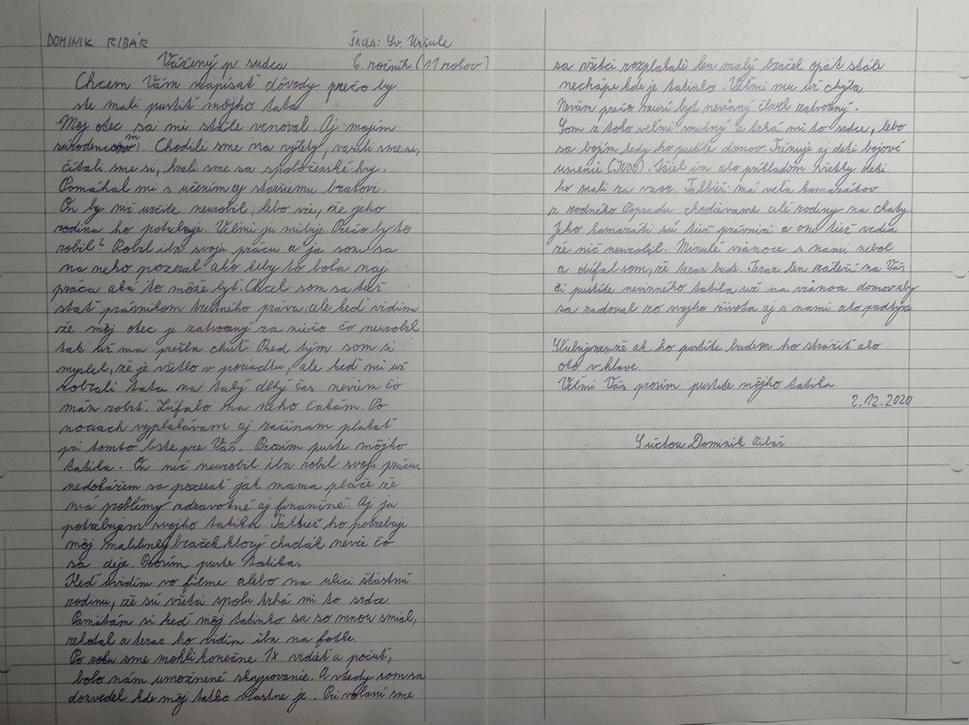 DOMINIK RIBÁR
Škola: Sv. Uršule
Vážený p. sudca
6. ročník (11 rokov)
Chcem Vám napísať dôvody prečo by
ste mali pustiť môjho tata
Môj otec sa mi stále venoval. Aj mojim
súrodencom. Chodili sme na výlety, varili sme si,
čítali sme si, hrali sme sa spoločenské hry.
Pomáhal mi s učením aj staršiemu bratovi.
On by nič určite neurobil, lebo vie, že jeho
rodina ho potrebuje. Veľmi ju miluje. Prečo by to
robil? Robil iba svoju prácu a ja som sa
na neho pozeral ako keby to bola naj
práca aká to môže byť. Chcel som sa tiež
stať právnikom trestného práva, ale keď vidím
že môj otec je zatvorený za niečo čo neurobil
tak už ma prešla chuť. Pred tým som si
myslel, že je všetko v poriadku, ale keď mi už
zobrali tata na taký dlhý čas neviem čo
mám robiť. Zúfalo na neho čakám. Po
nociach vyplakávam aj začínam plakať
pri tomto liste pre Vás. Prosím pusťte môjho
tatika. On nič neurobil iba robil svoju prácu.
nedokážem sa pozerať jak mama pláče že
má problémy zdravotné aj finančné. Aj ja
potrebujem svojho tatika. Taktiež ho potrebuje
môj malilinký braček, ktorý chudák nevie čo
sa deje. Prosím pusťte tatika.
Keď uvidím vo filme alebo na ulici šťastnú
rodinu, že sú všetci spolu trhá mi to srdce.
Pamätám si keď môj tatinko sa so mnou smial,
rehotal a teraz ho vidím iba na fotke.
Po roku sme mohli konečne 1x vidieť a počuť,
bolo nám umožnené skypovanie. A vtedy som sa
dozvedel kde môj tatko vlastne je. Pri volaní sme
sa všetci rozplakali len malý braček opäť stále
nechápe kde je tatinko. Veľmi mu už chýba.
Neviem prečo musí byť nevinný človek zatvorený.
Som z toho veľmi smutný a trhá mi to srdce, lebo
sa bojím kedy ho pustíte domov. Trénuje aj deti bojové
umenie (JUDO). Išiel im ako príkladom všetky deti
ho mali za vzor. Taktiež má veľa kamarátov
z rodného Popradu chodievame celé rodiny na chaty
Jeho kamaráti sú tiež právnici a oni tiež vedia
že nič neurobil. Minulé vianoce s nami nebol
a dúfal som, že teraz bude. Teraz len záleží na Vás
či pustíte nevinného tatika už na vianoce domov aby
sa radoval zo svojho života aj s nami ako predtým
Sľubujem, že ak ho pustíte budem ho strážiť ako
oko v hlave.
Veľmi Vás prosím pustite môjho tatika
2.12.2020
S úctou Dominik Ribár